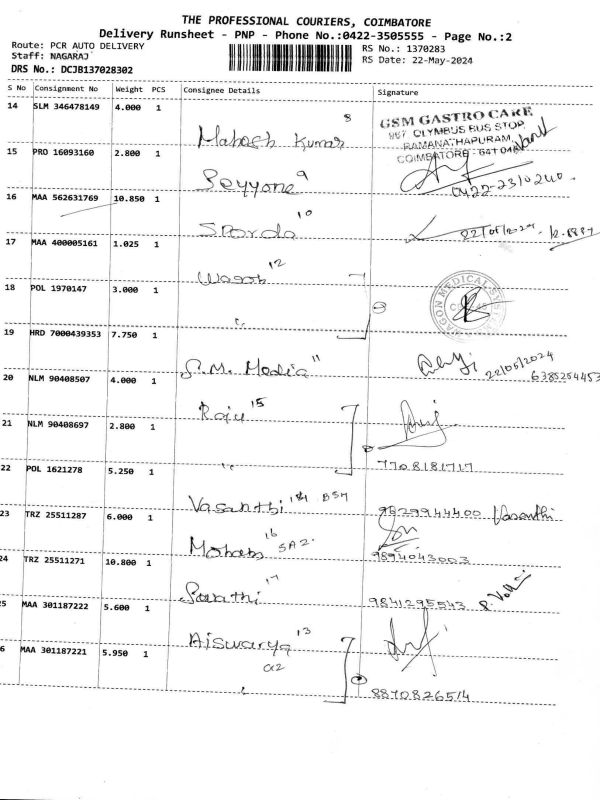 THE PROFESSIONAL COURIERS, COIMBATORE
Delivery Runsheet - PNP - Phone No.:0422-3505555 - Page No.:2
Route: PCR AUTO DELIVERY
RS No.: 1370283
Staff: NAGARAJ
RS Date: 22-May-2024
DRS No.: DCJB137028302
S No Consignment No Weight PCS Consignee Details Signature
14 SLM 346478149 4.000 1 8
Mahesh Kumar
GSM GASTRO CARE
967 OLYMBUS BUS STOP,
RAMANATHAPURAM,
COIMBATORE - 641 045
15 PRO 16093160 2.800 1
Seyyone 9
0422-2310240.
16 MAA 562631769 10.850 1 10
Sporda
22/05/2024
17 MAA 400005161 1.025 1
Wagon 12
18 POL 1970147 3.000 1
WAGON MEDICAL SYSTEMS
19 HRD 7000439353 7.750 1
S.M. Media 11
22/05/2024
6385254453
20 NLM 90408507 4.000 1
Raju 15
21 NLM 90408697 2.800 1
7708181717
22 POL 1621278 5.250 1
Vasanthi 14 B54
9829944400 Vasanthi
23 TRZ 25511287 6.000 1 16
SA2.
9894043003
24 TRZ 25511271 10.800 1 17
Sarathi
9841295543
25 MAA 301187222 5.600 1
Aiswarya 13
6 MAA 301187221 5.950 1
a2
8870826514